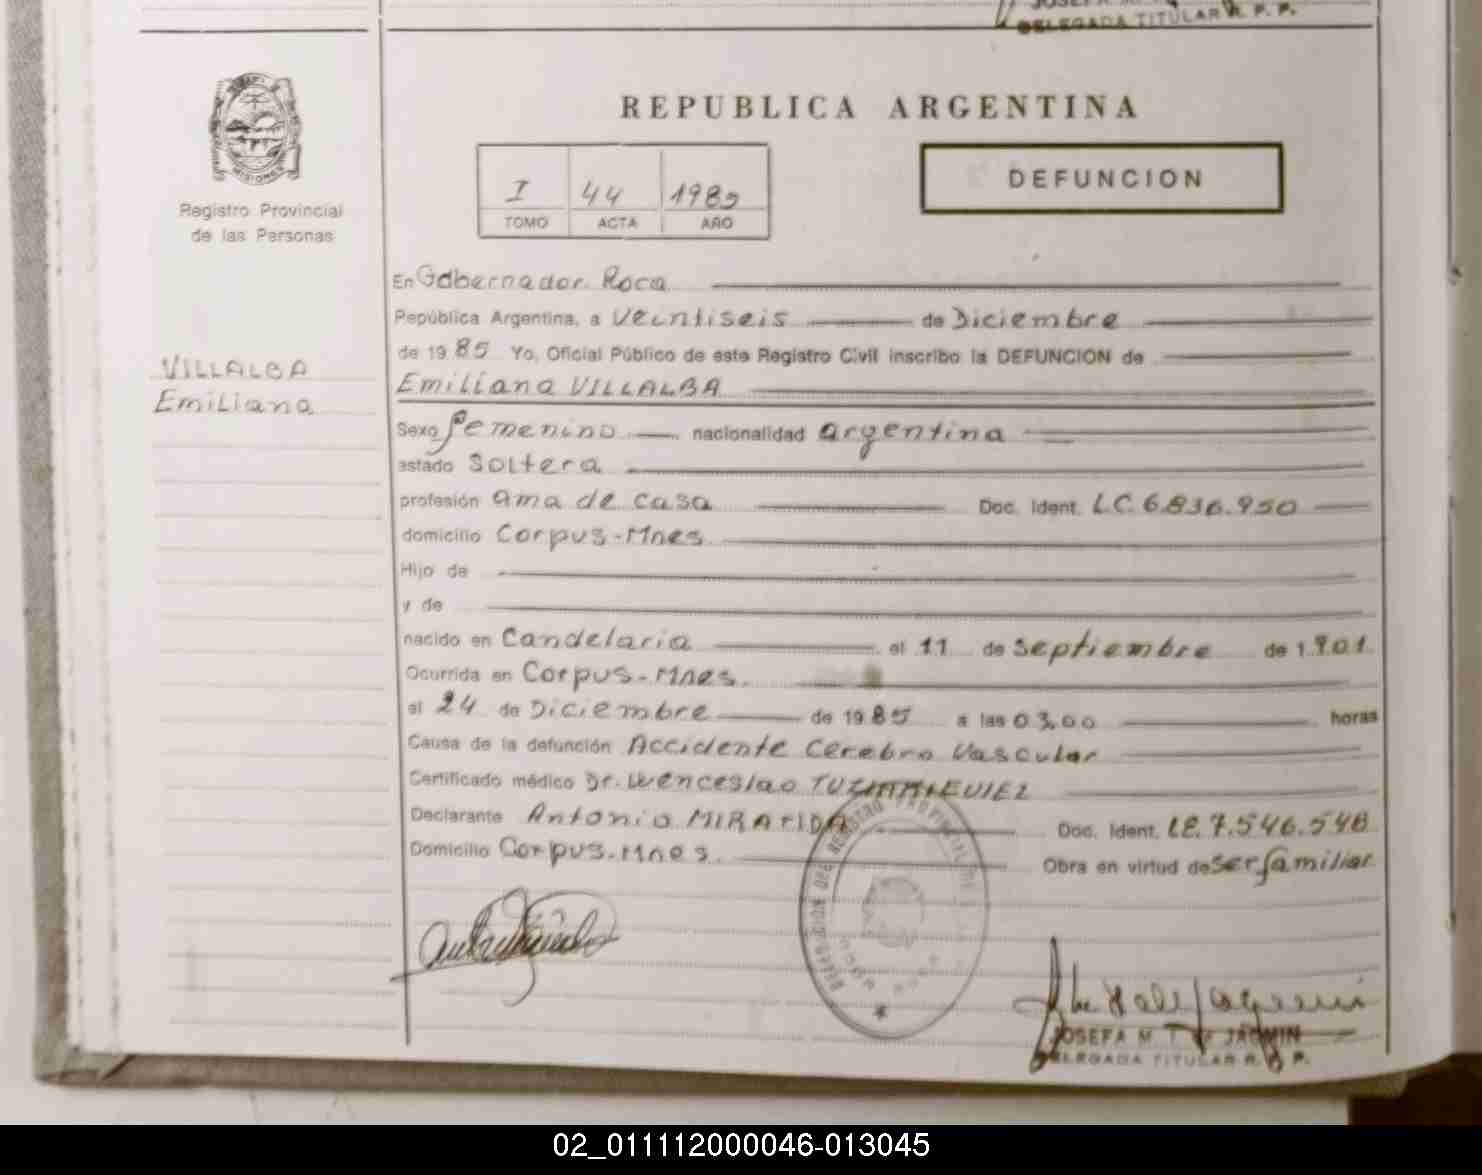 DELEGADA TITULAR R. P. P.
MISIONES
Registro Provincial
de las Personas
VILLALBA
Emiliana
REPUBLICA ARGENTINA
I 44 1985
TOMO ACTA AÑO
DEFUNCION
En Gobernador Roca
República Argentina, a Veintiseis de Diciembre
de 1985 Yo, Oficial Público de este Registro Civil inscribo la DEFUNCION de
Emiliana VILLALBA
Sexo femenino nacionalidad argentina
estado Soltera
profesión ama de casa Doc. Ident. LC.6.836.950
domicilio Corpus-Mnes
Hijo de
y de
nacido en Candelaria el 11 de Septiembre de 1.901
Ocurrida en Corpus-Mnes.
el 24 de Diciembre de 1985 a las 03,00 horas
Causa de la defunción Accidente Cerebro Vascular
Certificado médico Dr. Wenceslao
Declarante Antonio Doc. Ident. LE.7.546.548
Domicilio Corpus-Mnes. Obra en virtud de ser familiar
JOSEFA M. T. de JACMIN
DELEGADA TITULAR R. P. P.
02_011112000046-013045